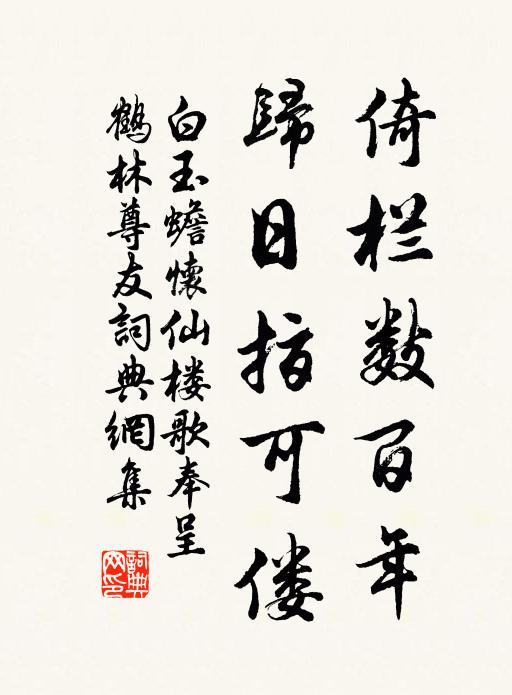 倚栏数百年
歸日指可偻
白玉蟾懷仙楼歌奉呈
鶴林尊友詞典網集
詞典网印